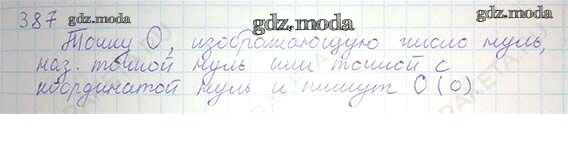 gdz.moda
387
gdz.moda
Точку О, изображающую число нуль,
наз. точкой нуль или точкой с
координатой нуль и пишут О (0).
gdz.moda